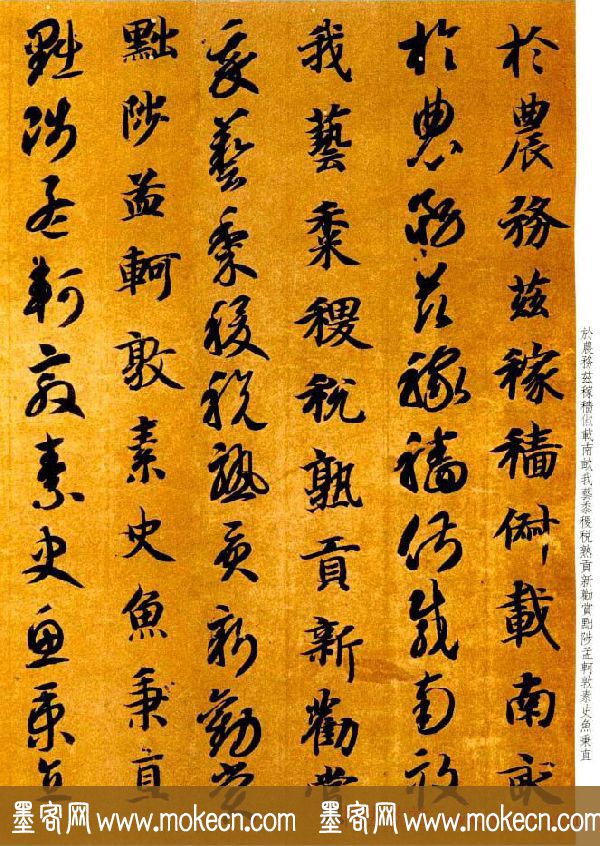 於農務茲稼穡俶載南畝我藝黍稷稅熟貢新勸賞黜陟孟軻敦素史魚秉直
於農務茲稼穡俶載南畝
於農務茲稼穡俶載南畝
我藝黍稷稅熟貢新勸賞
我藝黍稷稅熟貢新勸賞
黜陟孟軻敦素史魚秉直
黜陟孟軻敦素史魚秉直
墨客网 www.mokecn.com 墨客网 www.mokecn.com